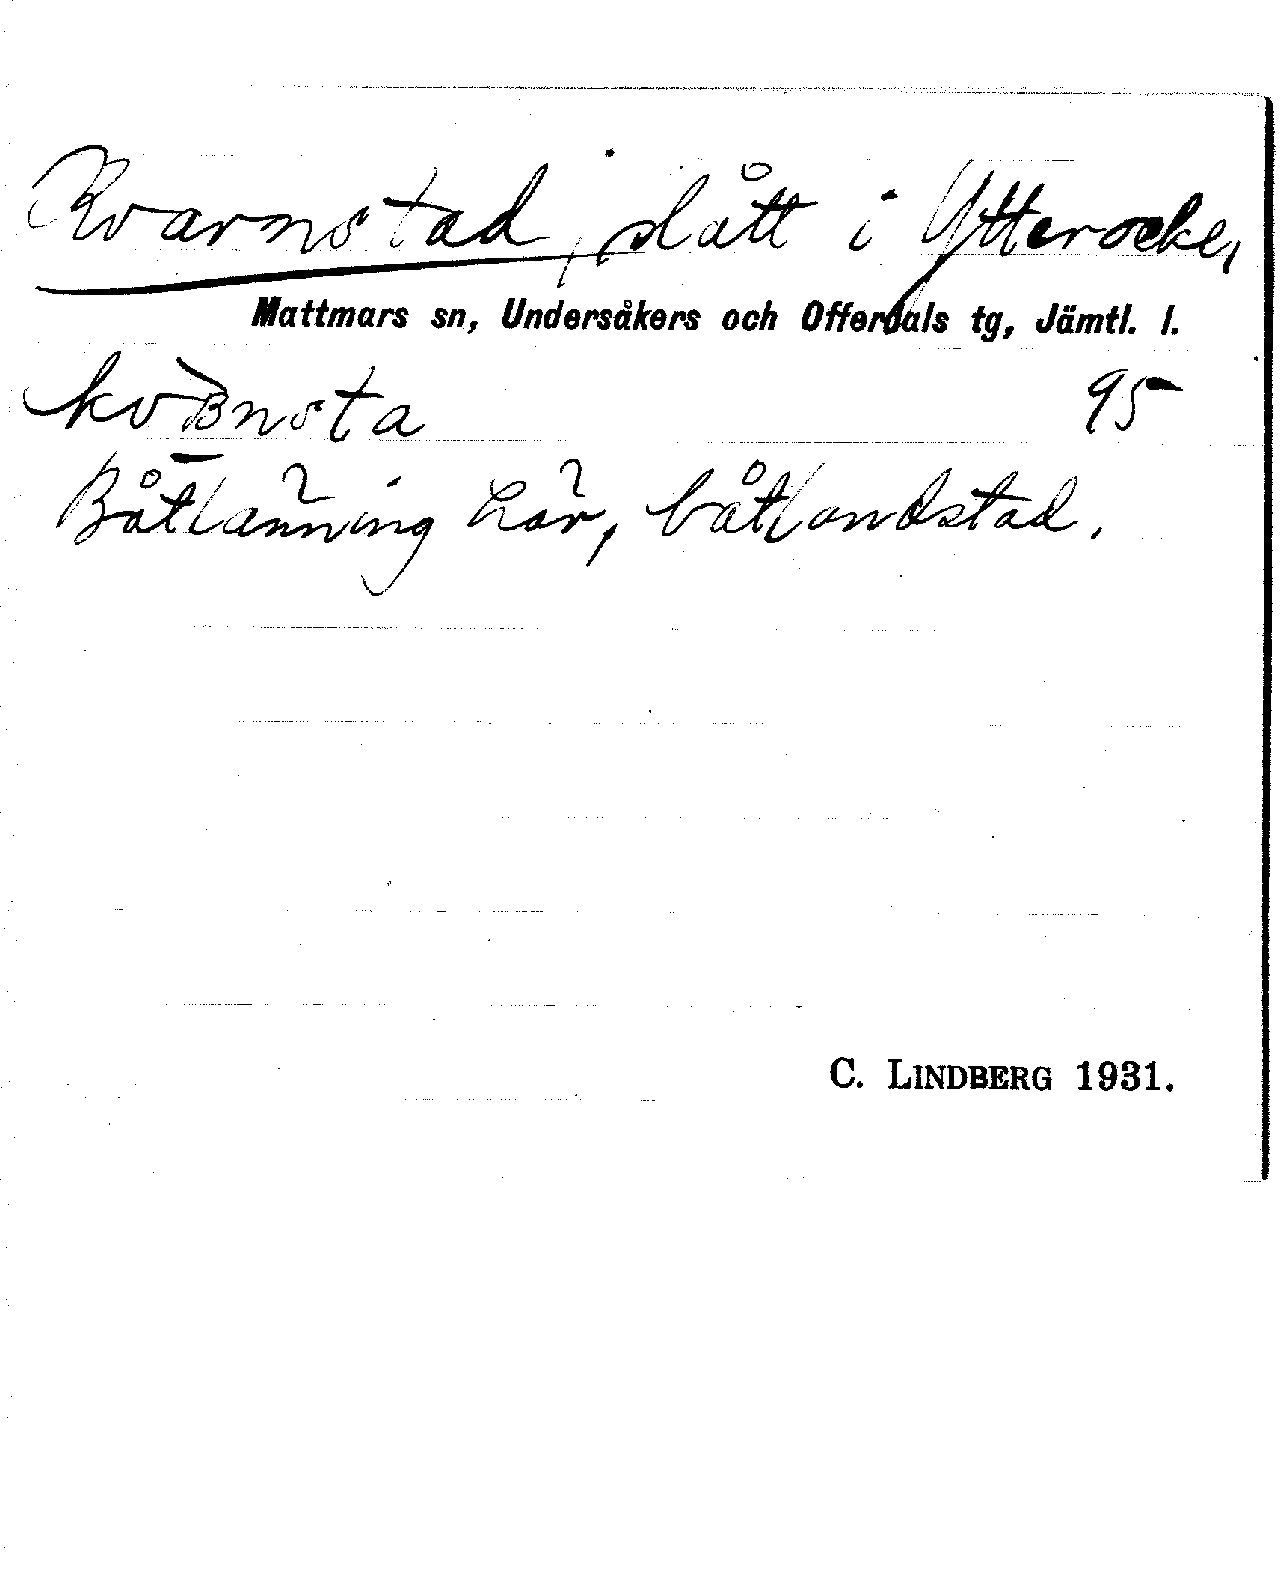 Kvarnstad, slått i Ytterocke,
Mattmars sn, Undersåkers och Offerdals tg, Jämtl. l.
95
Båtlänning här, båtlandstad.
C. LINDBERG 1931.